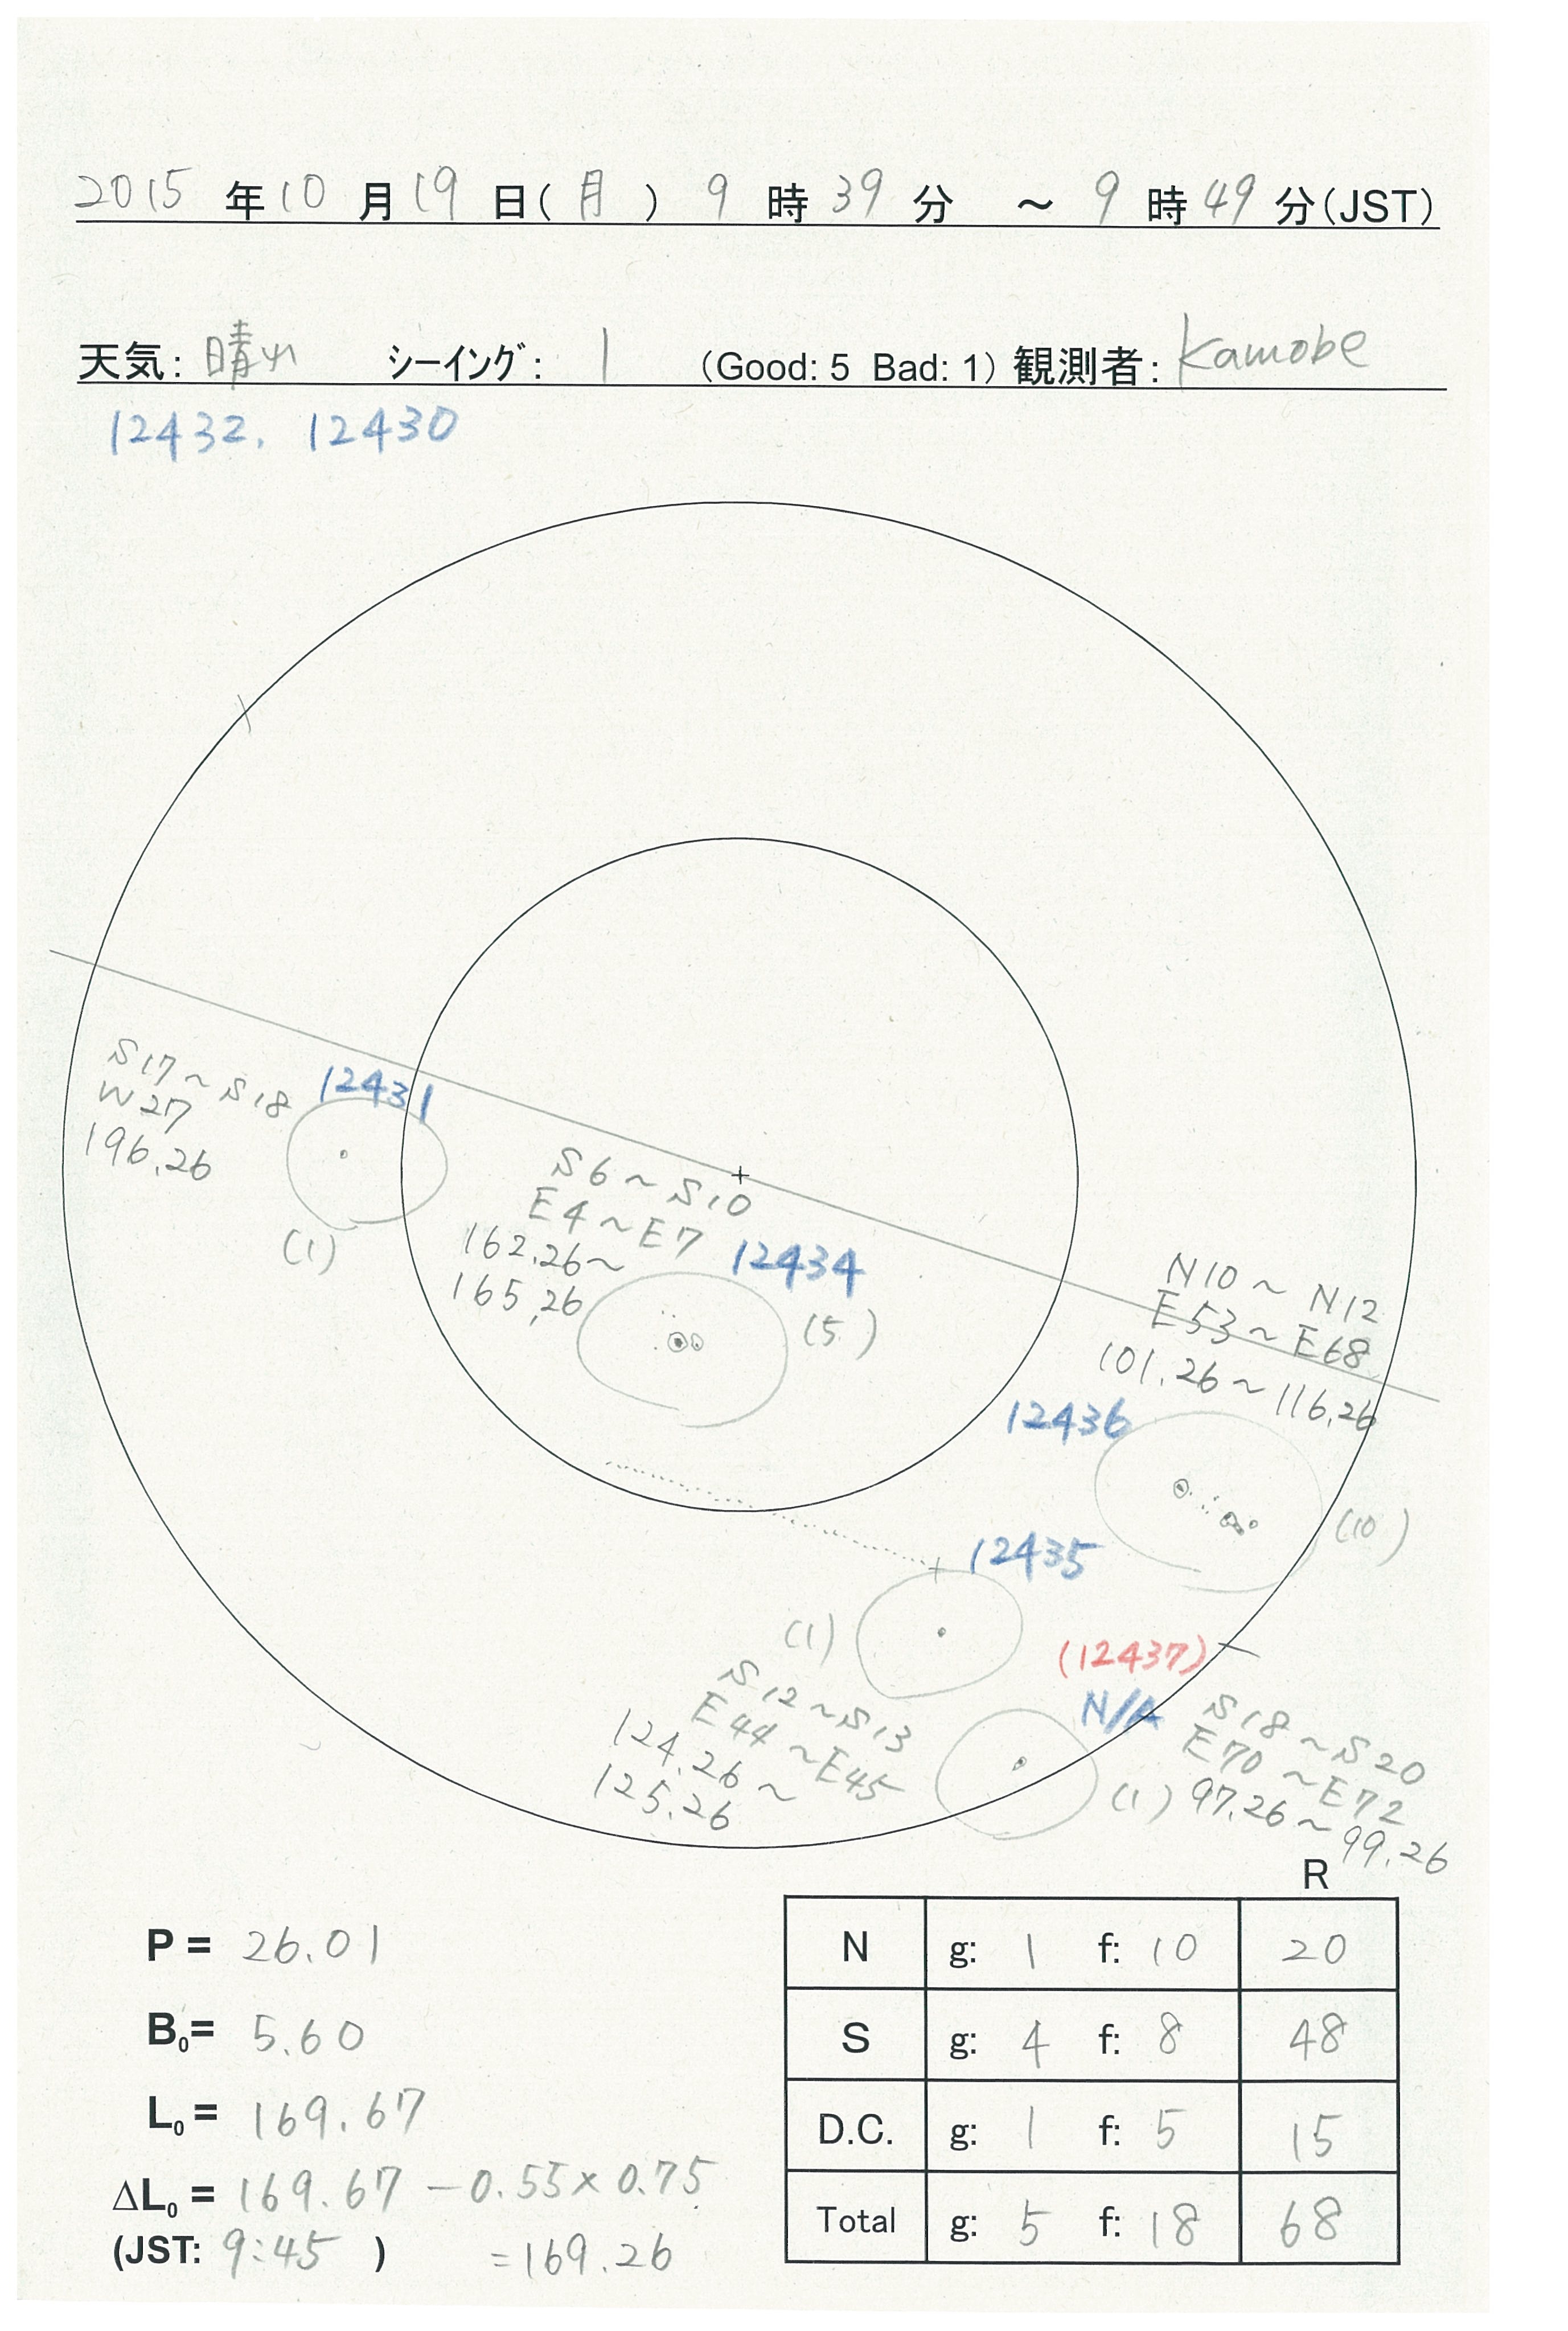 2015 年 10 月 19 日( 月 ) 9 時 39 分 ～ 9 時 49 分(JST)
天気: 晴れ ｼｰｲﾝｸﾞ: 1 (Good: 5 Bad: 1) 観測者: Kamobe
12432, 12430
S17～S18
W27
196.26
12431
(1)
S6～S10
E4～E7
162.26～
165.26
12434
(5)
N10～N12
E53～E68
101.26～116.26
12436
(10)
12435
(1)
S12～S13
E44～E45
124.26～
125.26
(12437)
N/A
S18～S20
E70～E72
(1) 97.26～99.26
R
N g: 1 f: 10 20
S g: 4 f: 8 48
D.C. g: 1 f: 5 15
Total g: 5 f: 18 68
P = 26.01
B₀= 5.60
L₀ = 169.67
ΔL₀ = 169.67 －0.55×0.75
(JST: 9:45 ) =169.26